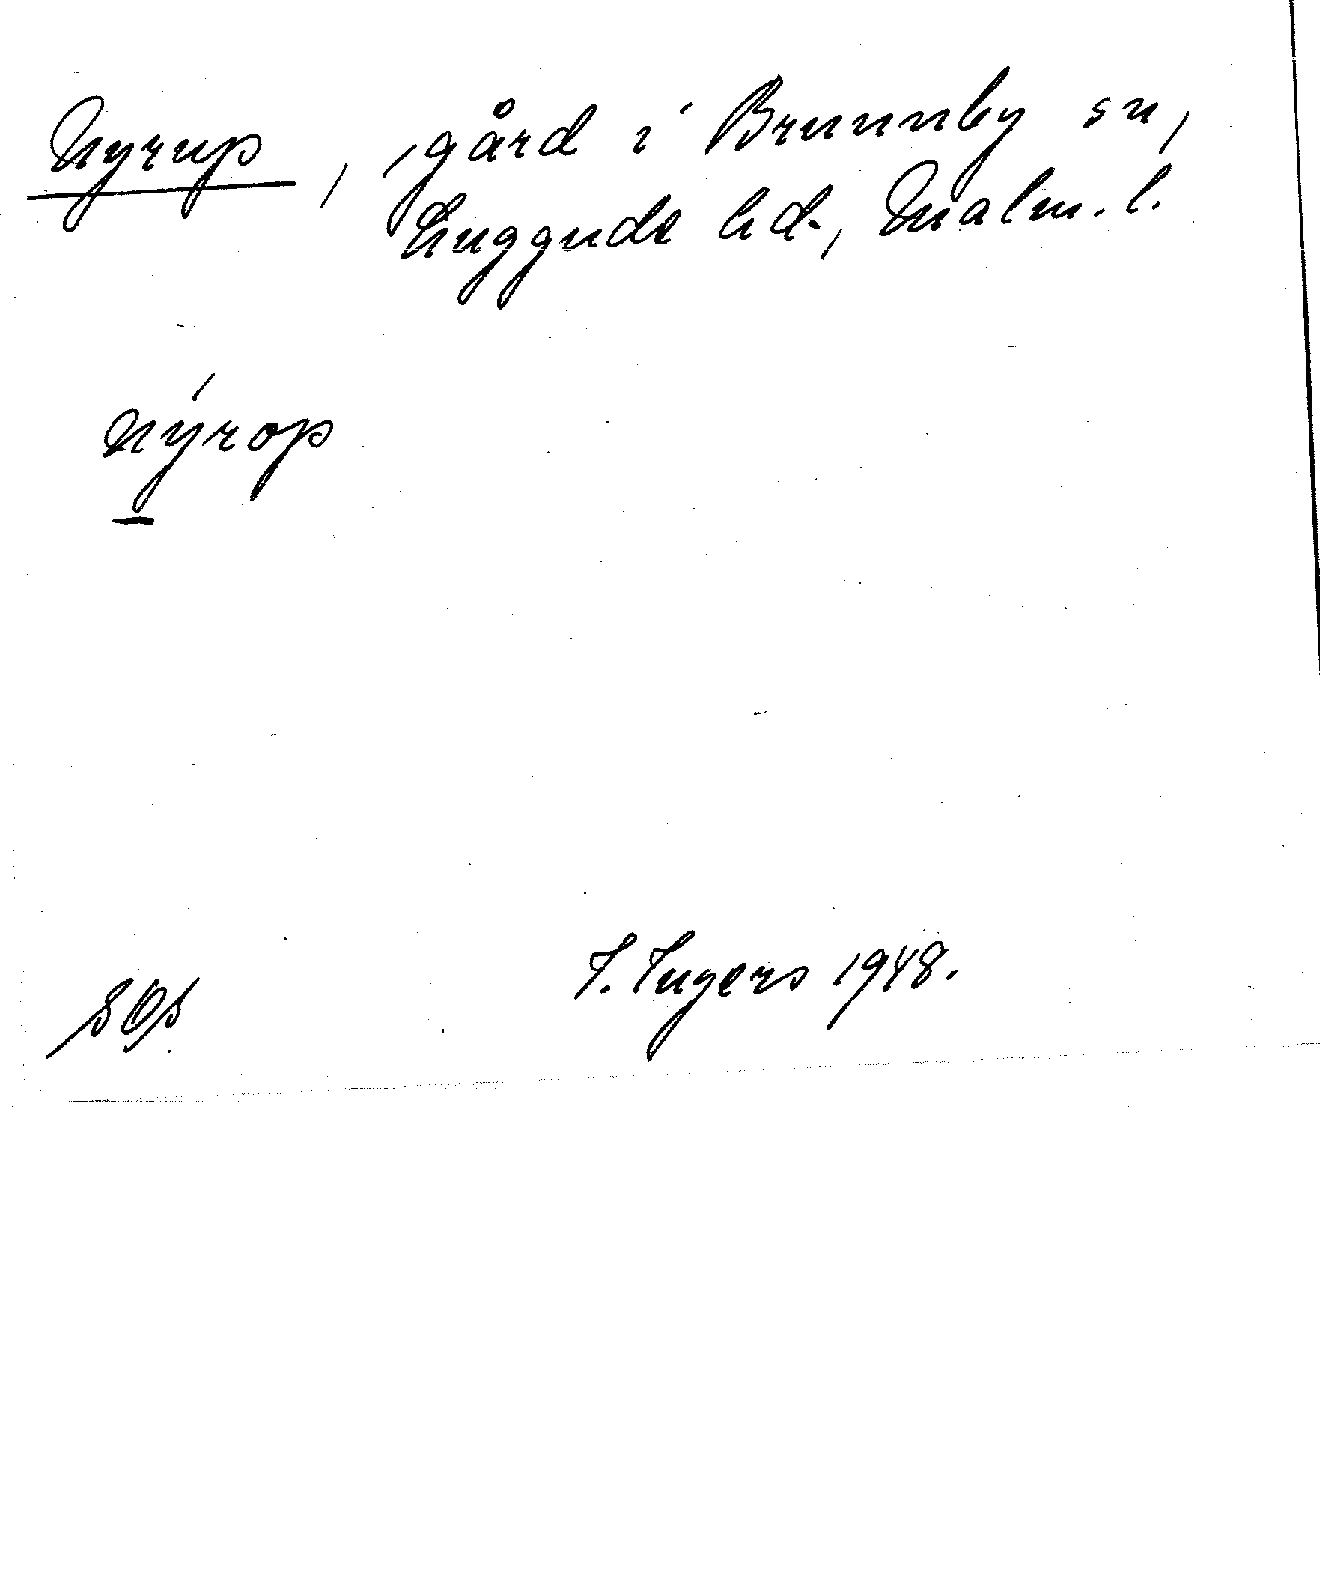 Nyrup, gård i Brunnby sn,
Luggude hd., Malm. l.
nýrop
SOS
I. Ingers 1948.